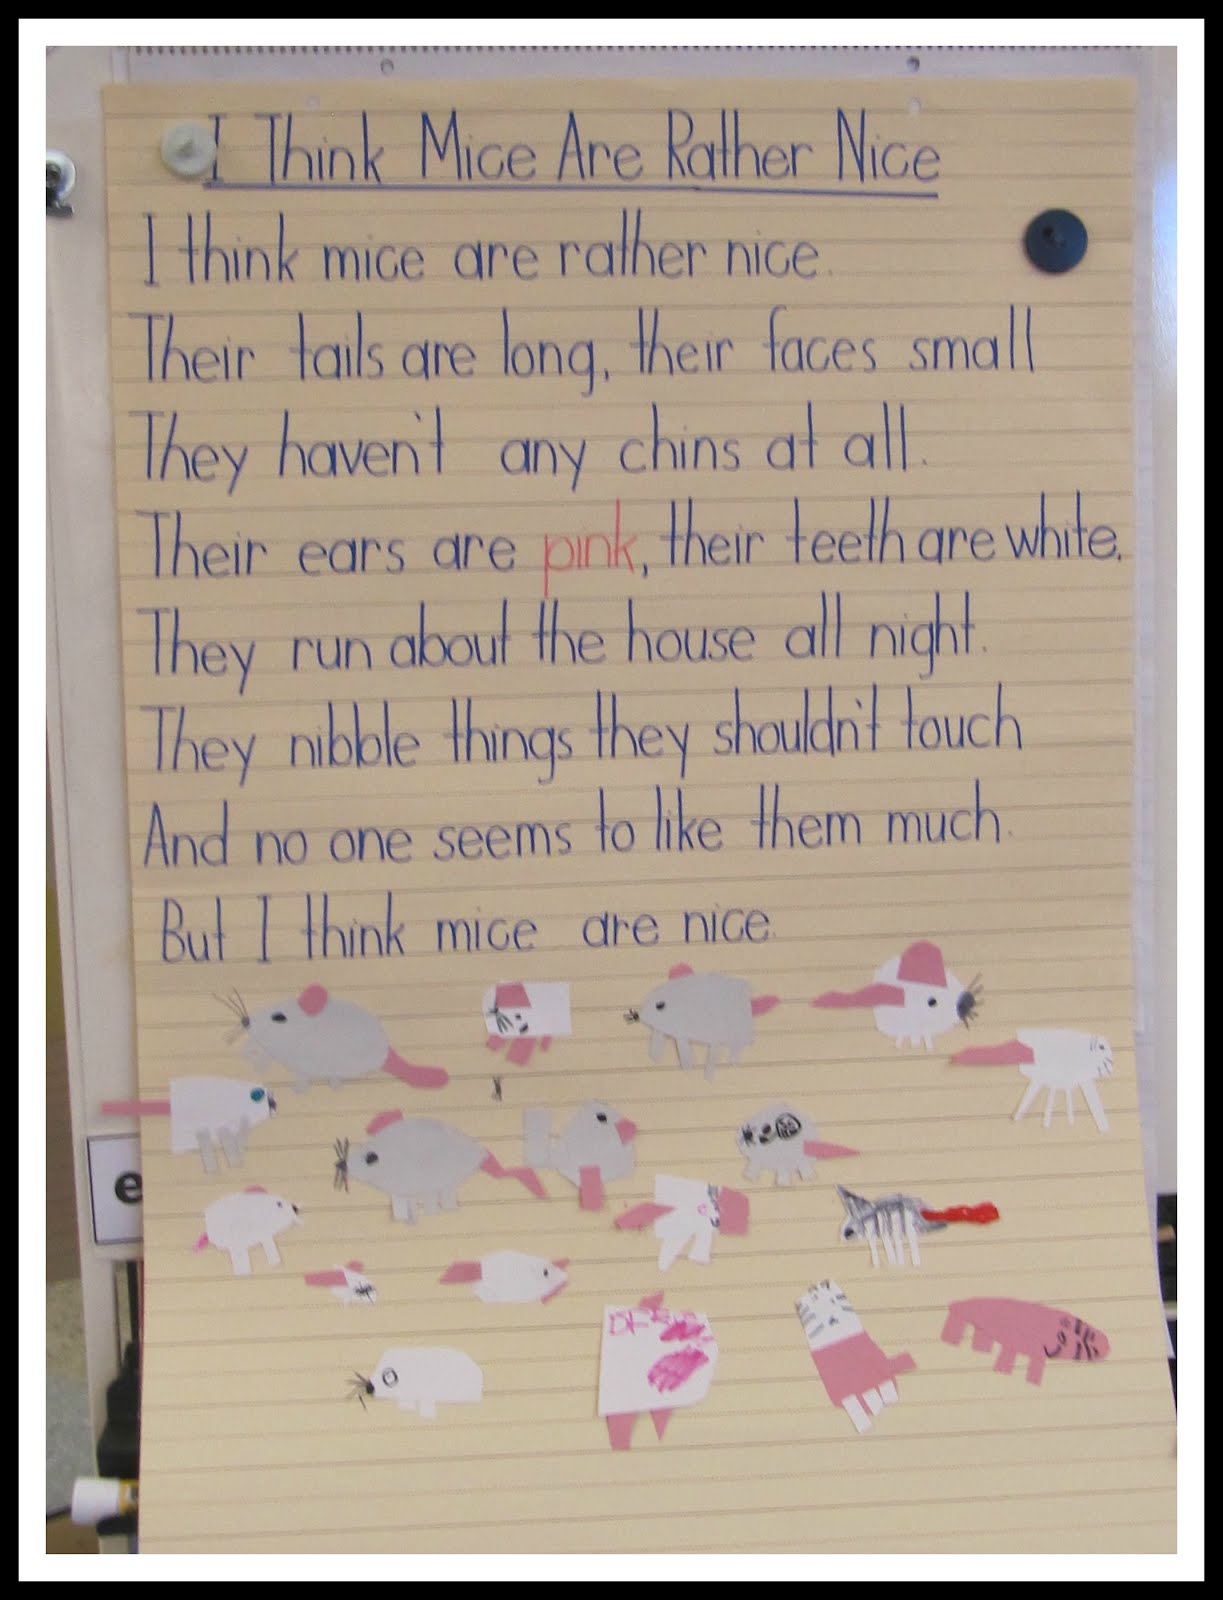 I Think Mice Are Rather Nice
I think mice are rather nice.
Their tails are long, their faces small
They haven't any chins at all.
Their ears are pink, their teeth are white.
They run about the house all night.
They nibble things they shouldn't touch
And no one seems to like them much.
But I think mice are nice.
e